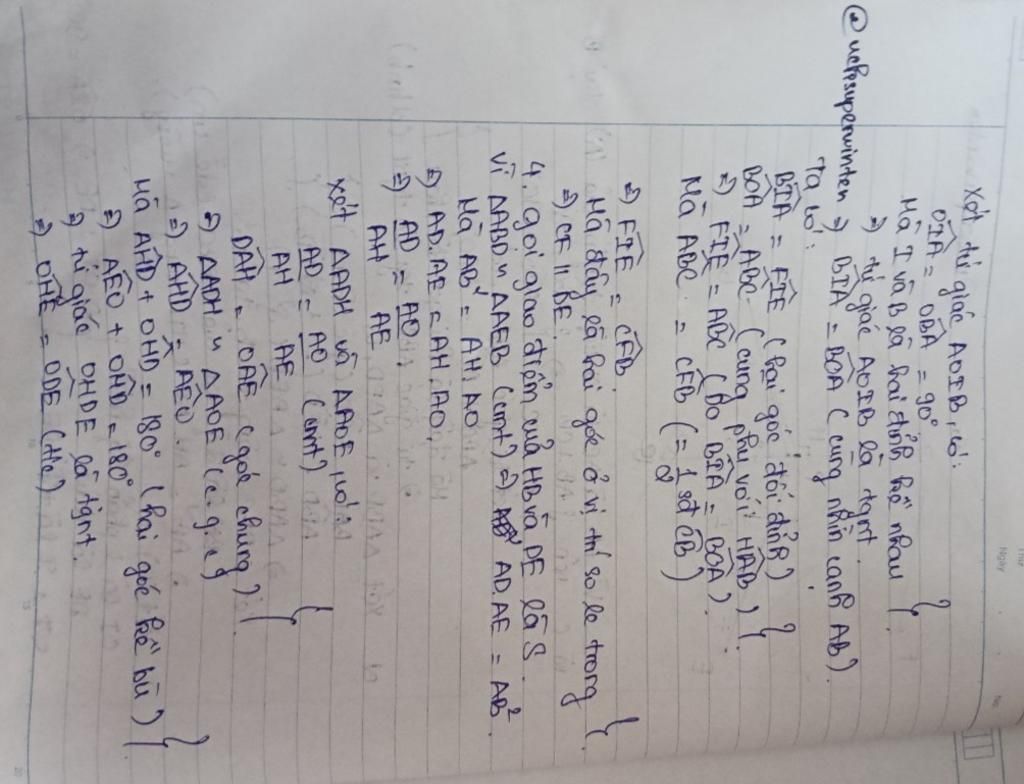 Xét tứ giác AOIB, có:
OIA = OBA = 90°
Mà I và B là hai đỉnh kề nhau }
⇒ tứ giác AOIB là tgnt.
@uchesuperwinten ⇒ BIA = BOA (cùng nhìn cạnh AB).
Ta có:
BIA = FIE (hai góc đối đỉnh) }
BOA = ABC (cùng phụ với HAB)
⇒ FIE = ABC (do BIA = BOA).
Mà ABC = CFB (= 1/2 sđ CB)
⇒ FIE = CFB.
Mà đây là hai góc ở vị trí so le trong }
⇒ CF || BE.
4. gọi giao điểm của HB và DE là S.
Vì ΔABD ~ ΔAEB (cmt) ⇒ AD.AE = AB².
Mà AB² = AH.AO
⇒ AD.AE = AH.AO.
⇒ AD/AH = AO/AE
Xét ΔADH và ΔAOE, có:
AD/AH = AO/AE (cmt) }
DAH = OAE (góc chung)
⇒ ΔADH ~ ΔAOE (c.g.c)
⇒ AHD = AEO.
Mà AHD + OHD = 180° (hai góc kề bù) }
⇒ AEO + OHD = 180°
⇒ tứ giác OHDE là tgnt.
⇒ OHE = ODE (t/c)
Ngày